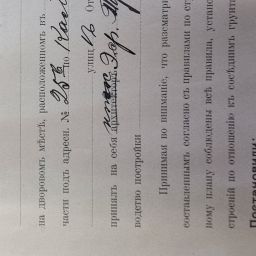 на дворовомъ мѣстѣ, расположенномъ въ
части подъ адресн. № 258 по
улицѣ
принялъ на себя архитекторъ
водство постройки
Принимая во вниманіе, что разсматри
составленнымъ согласно съ правилами по ст
ному плану соблюдены всѣ правила, устан
строеній по отношенію къ сосѣднимъ грунт
Постановили: